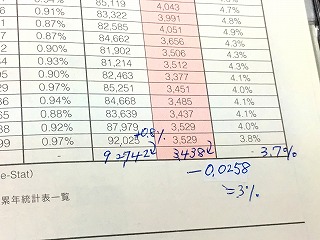 0.94% 85,119 4,043 4.7%
6 0.91% 83,322 3,991 4.8%
6 0.87% 82,585 4,051 4.9%
2 0.90% 84,662 3,656 4.3%
4 0.93% 81,902 3,506 4.3%
5 0.90% 81,214 3,512 4.3%
29 0.97% 82,463 3,377 4.1%
36 0.94% 85,251 3,451 4.0%
65 0.88% 84,668 3,485 4.1%
88 0.92% 83,639 3,437 4.1%
99 0.97% 87,979 3,529 4.0%
- 92,025 3,529 3.8%
+0.8%
92742 3,438 - 3.7%
-0.0258
=3%
e-Stat)
累年統計表一覧